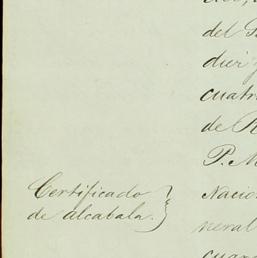 del
diez
cuatr
de R
P. M
Certificado
de alcabala.
Nacio
neral
cuar